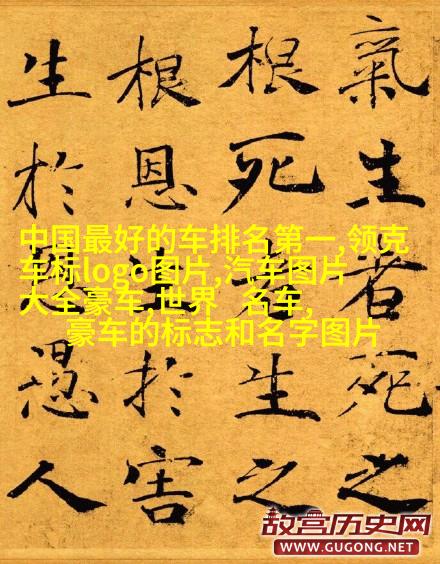 氣生者死之
根死者生之
根恩生於害
生於恩愚人
中国最好的车排名第一,领克
车标logo图片,汽车图片
大全豪车,世界 名车,
豪车的标志和名字图片
故宫历史网
WWW.GUGONG.NET